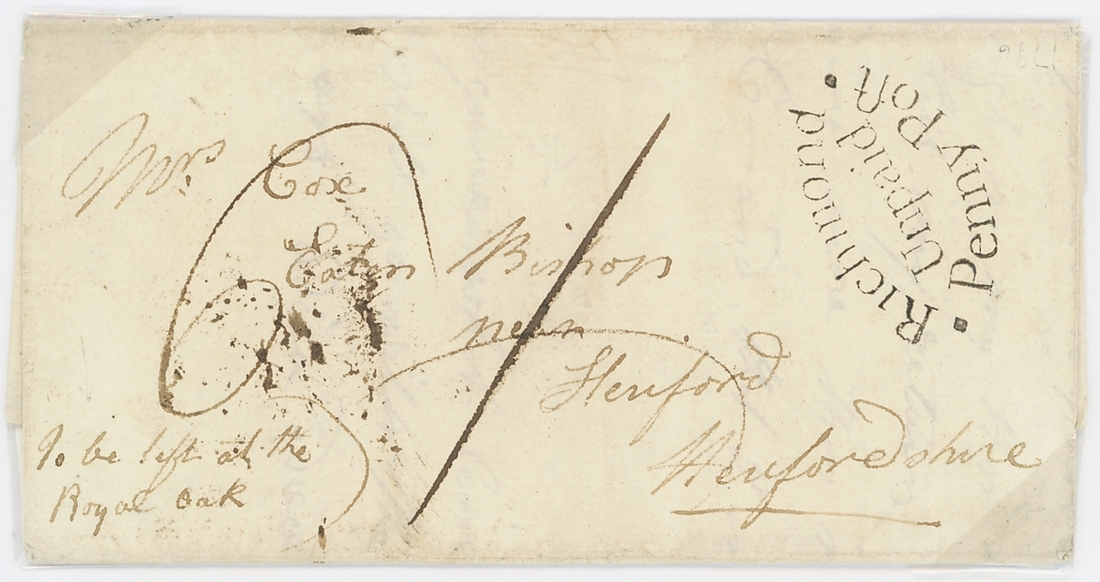 Mrs. Cox
Eaton Bishop
near
Hereford
Herefordshire
To be left at the
Royal Oak
Richmond
Unpaid
Penny Post